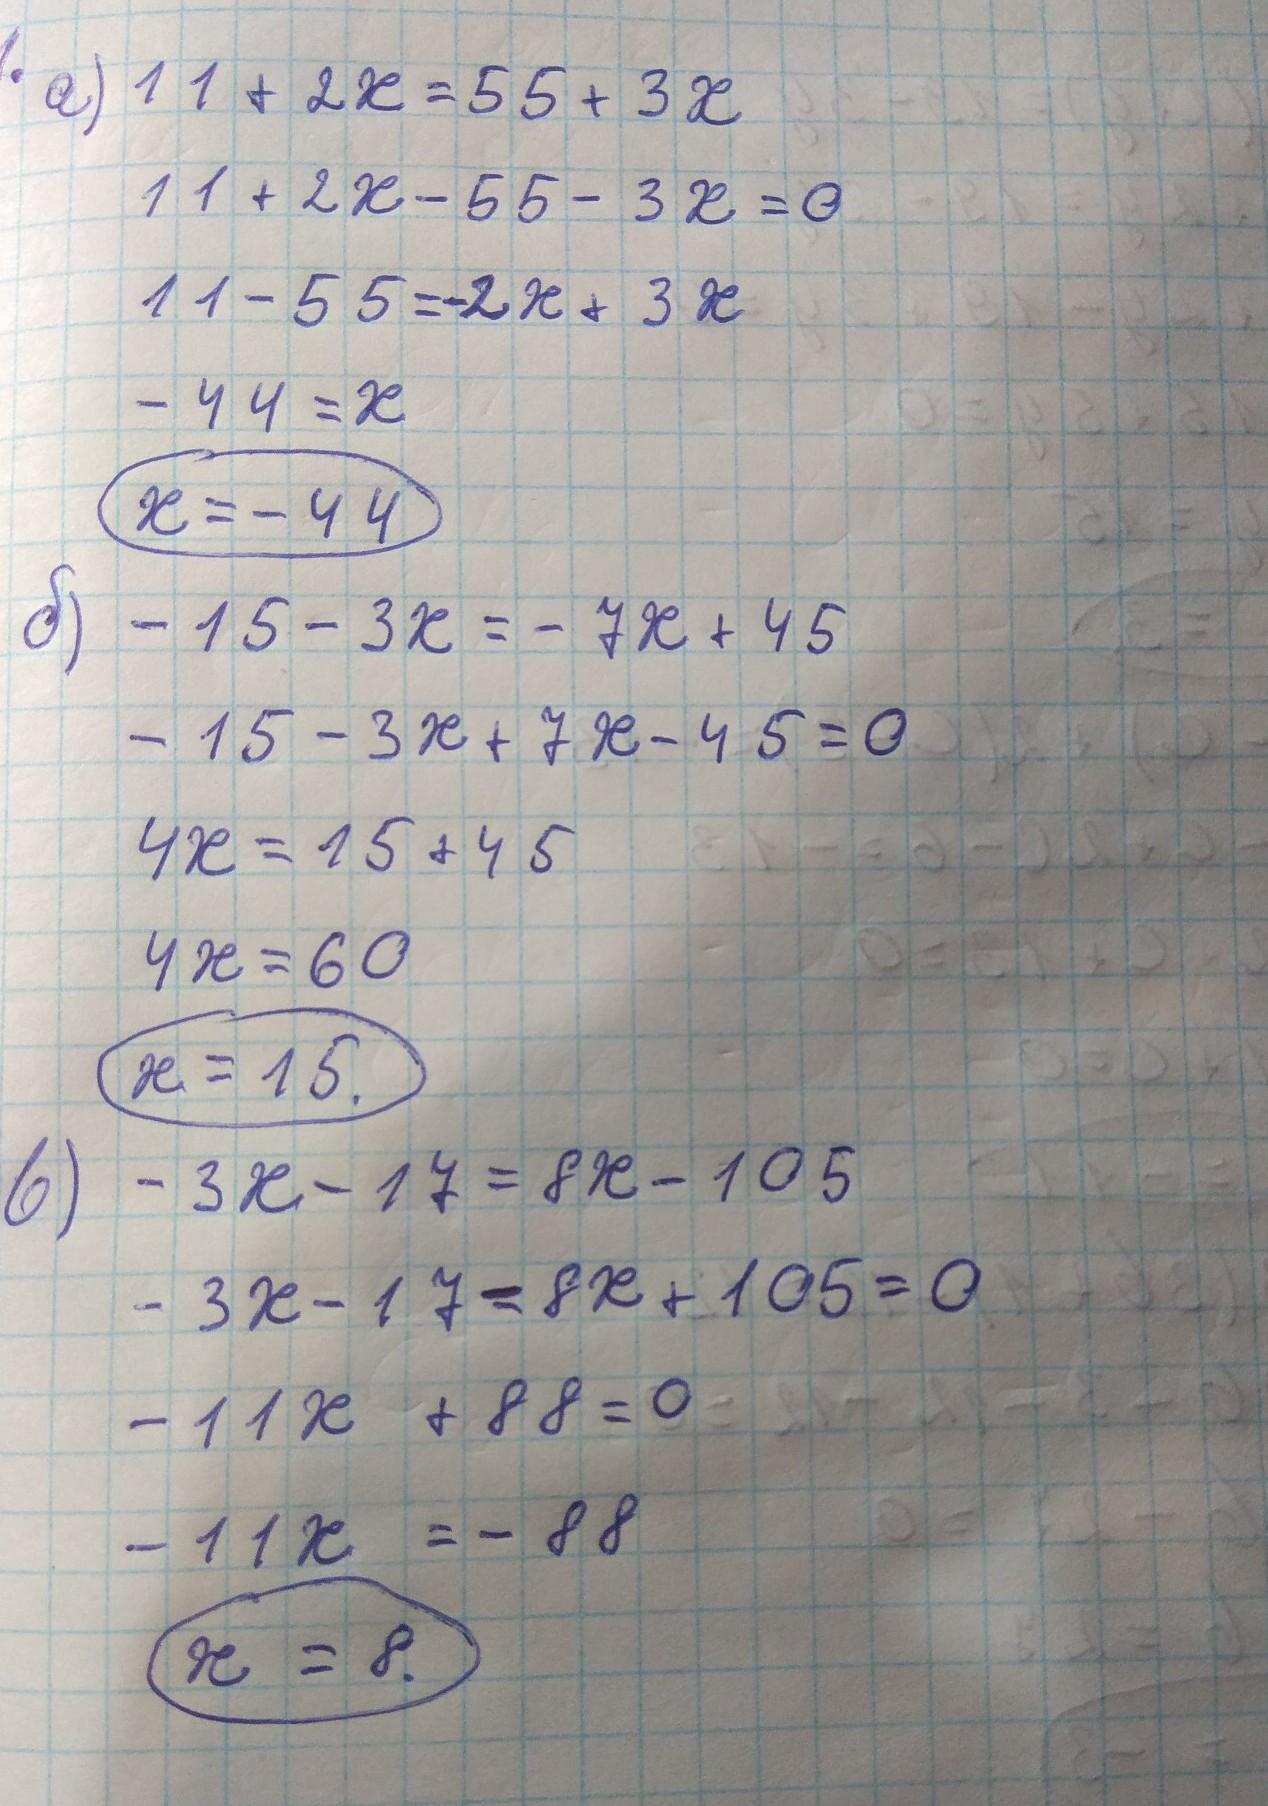 1. а) 11 + 2x = 55 + 3x
11 + 2x - 55 - 3x = 0
11 - 55 = -2x + 3x
- 44 = x
x = - 44
б) - 15 - 3x = - 7x + 45
- 15 - 3x + 7x - 45 = 0
4x = 15 + 45
4x = 60
x = 15.
в) - 3x - 17 = 8x - 105
- 3x - 17 - 8x + 105 = 0
- 11x + 88 = 0
- 11x = - 88
x = 8.